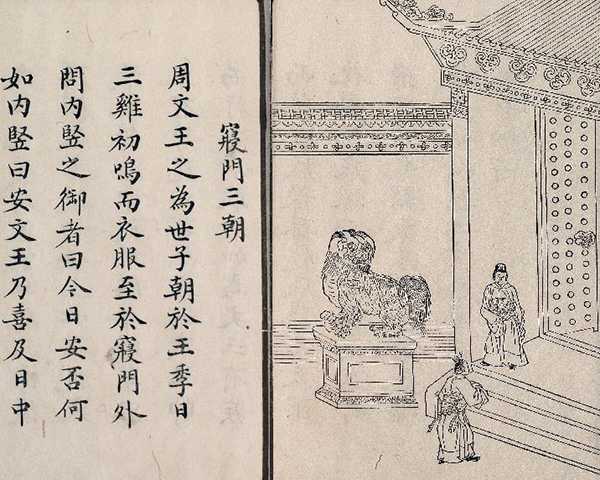 寢門三朝
周文王之為世子朝於王季日
三雞初鳴而衣服至於寢門外
問內豎之御者曰今日安否何
如內豎曰安文王乃喜及日中